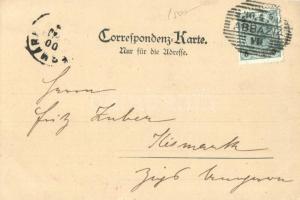 1500
Correspondenz-Karte.
Nur für die Adresse.
ABBAZIA
00
Herrn
Fritz Huber
Kismark
Zips Ungarn